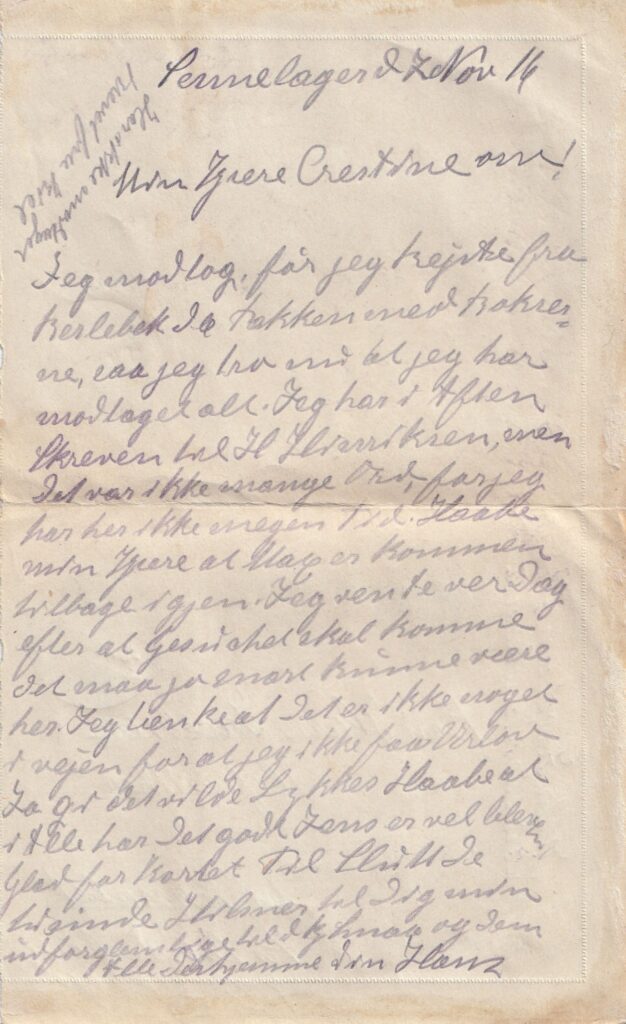 Sennelager d 7 Nov 16
Har ikke modtaget
fra Kiel
Min Kjere Crestine
Jeg modtog, før jeg Rejste fra
Kerlebek da Pakken med
ne, saa jeg tro nu at jeg har
modtaget alt. Jeg har i Aften
Skreven til H Hinriksen, men
det var ikke mange Ord, for jeg
har her ikke megen Tid. Haabe
min Kjere at Max er kommen
tilbage igjen. Jeg vente ver Dag
efter at Gesuchet skal komme
det maa jo snart kunne være
her. Jeg tenke at det er ikke noget
i vejen for at jeg ikke faa Urlov
Ja gi det vilde Lykkes Haabe at
i Alle har det godt Jens er vel bleven
Glad for Kortet Til Slutt de
tusinde Hilsner til Dig min
og dem
Alle Derhjemme din Hans